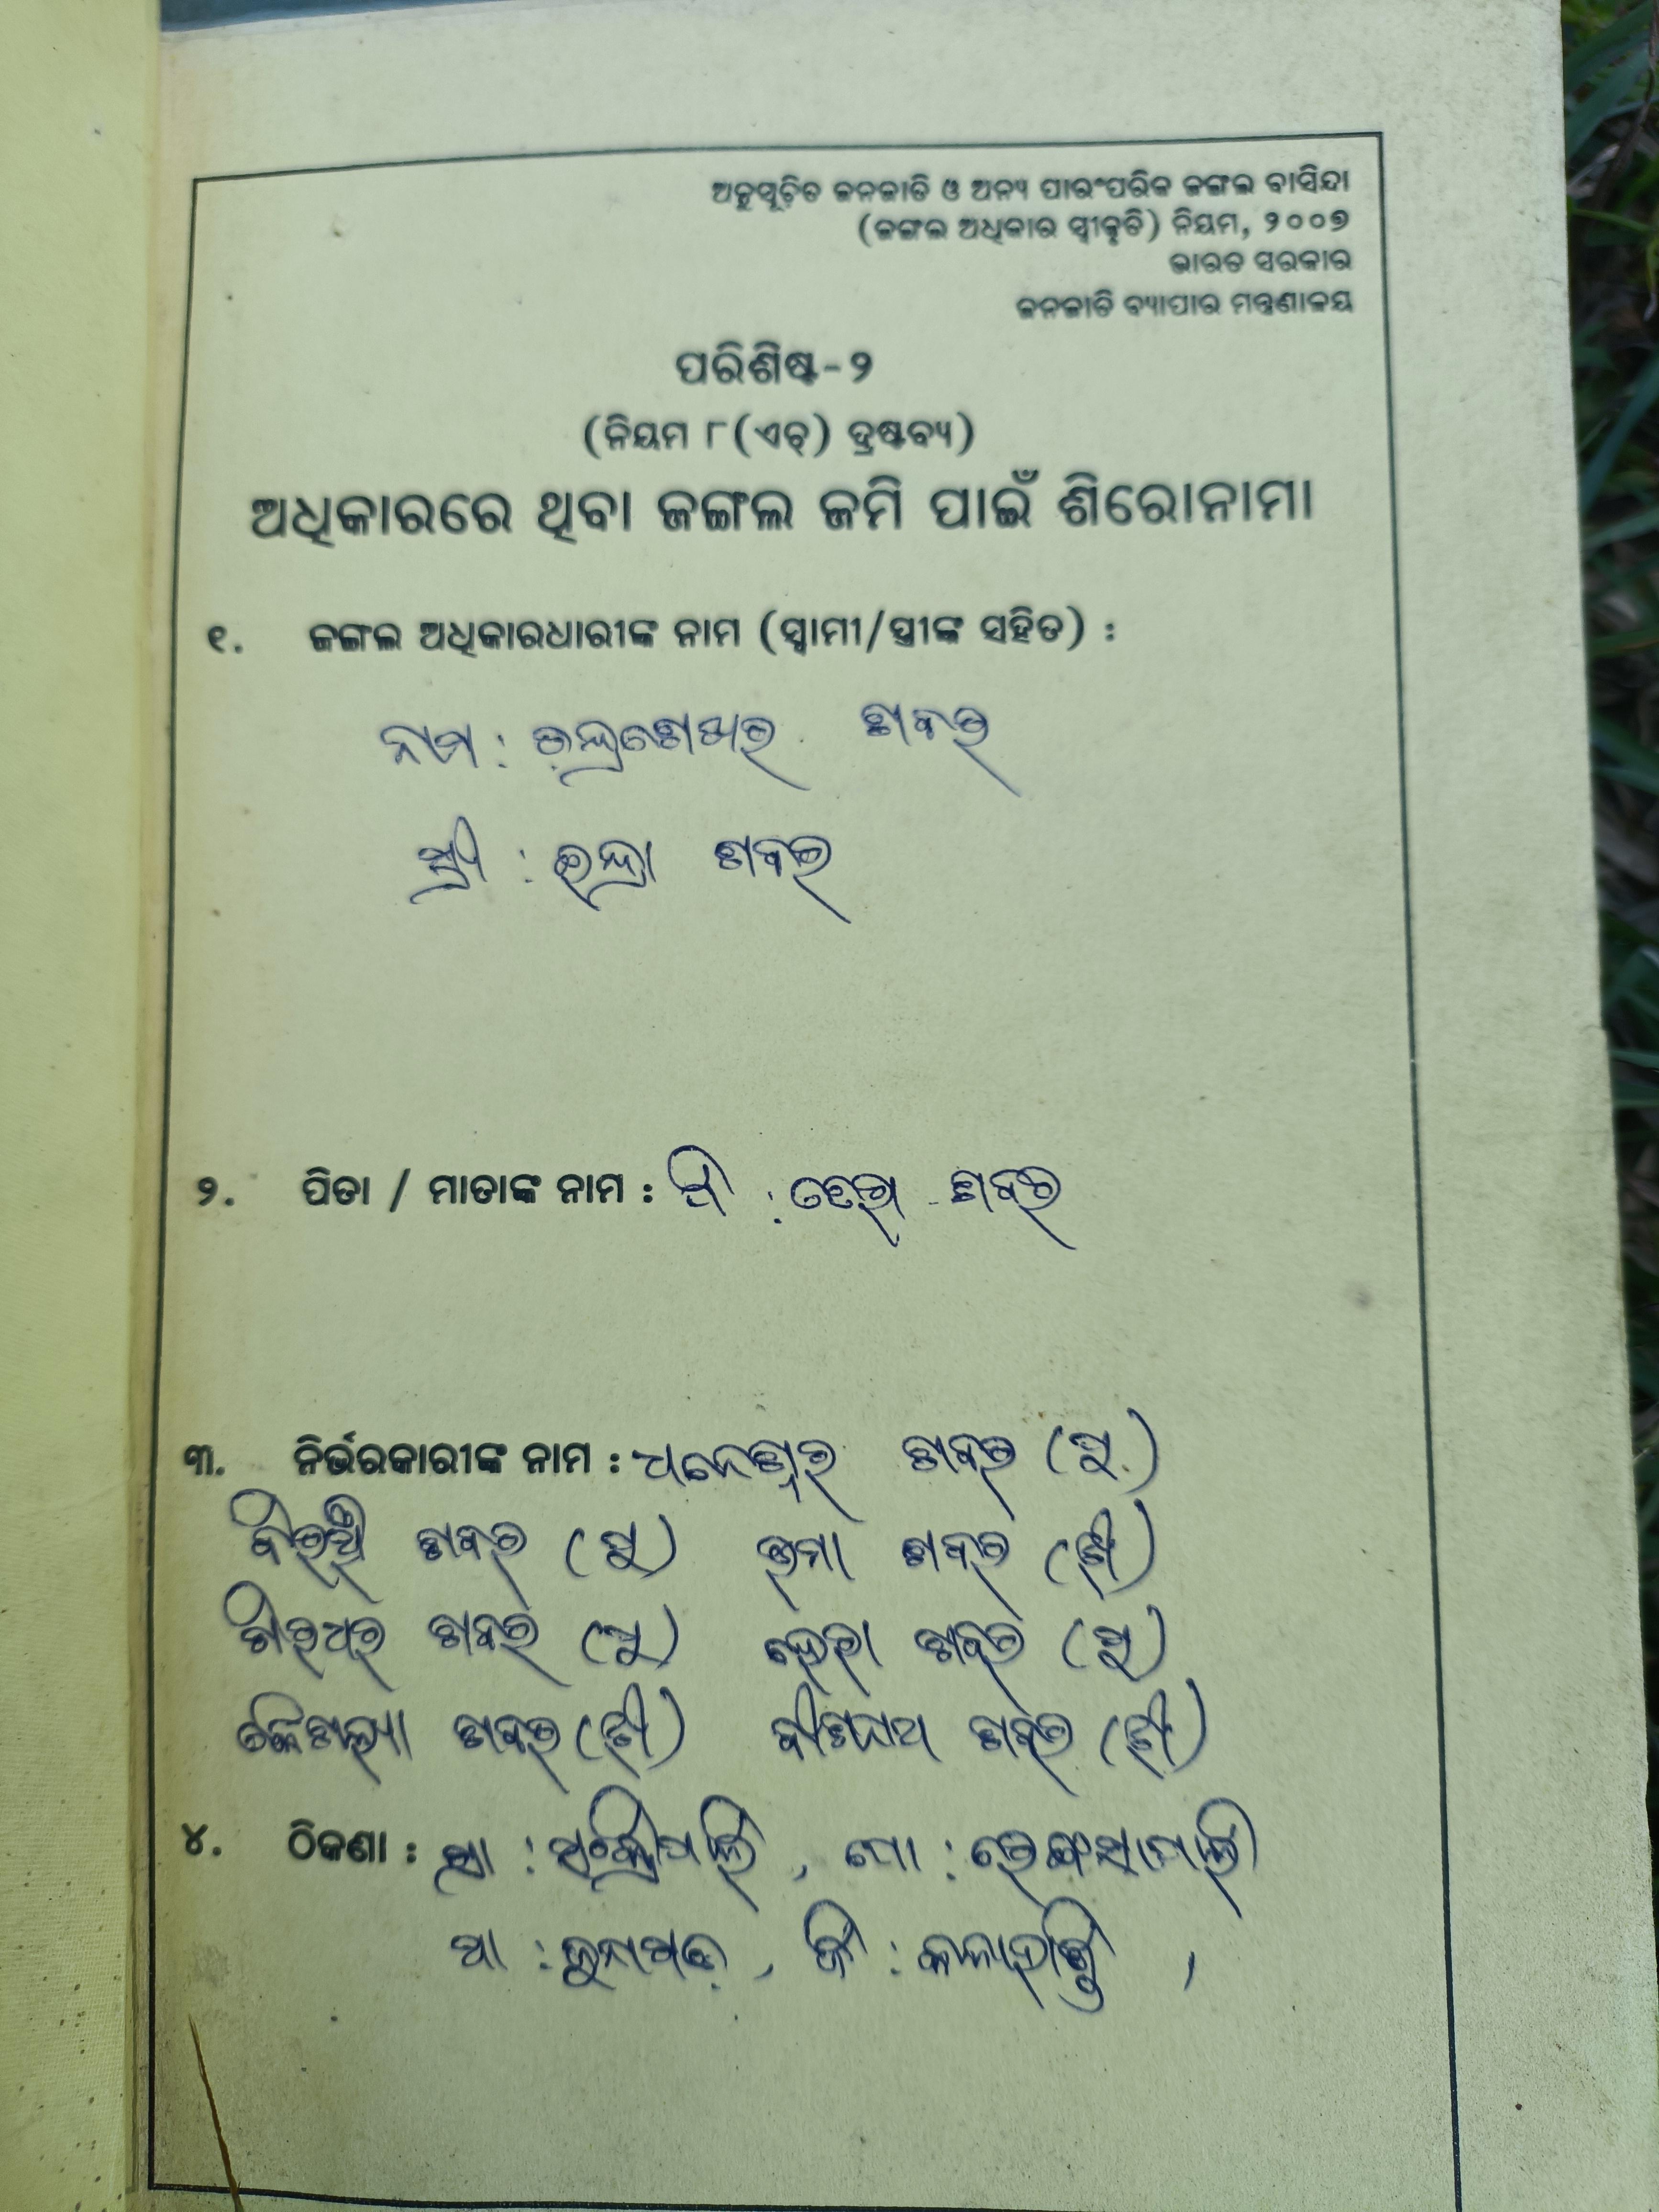 ଅନୁସୂଚିତ ଜନଜାତି ଓ ଅନ୍ୟ ପାରଂପରିକ ଜଙ୍ଗଲ ବାସିନ୍ଦା
(ଜଙ୍ଗଲ ଅଧିକାର ସ୍ୱୀକୃତି) ନିୟମ, ୨୦୦୭
ଭାରତ ସରକାର
ଜନଜାତି ବ୍ୟାପାର ମନ୍ତ୍ରଣାଳୟ
ପରିଶିଷ୍ଟ-୨
(ନିୟମ ୮(ଏଚ୍) ଦ୍ରଷ୍ଟବ୍ୟ)
ଅଧିକାରରେ ଥିବା ଜଙ୍ଗଲ ଜମି ପାଇଁ ଶିରୋନାମା
୧. ଜଙ୍ଗଲ ଅଧିକାରଧାରୀଙ୍କ ନାମ (ସ୍ୱାମୀ/ସ୍ତ୍ରୀଙ୍କ ସହିତ) :
ନାମ : ଚନ୍ଦ୍ରଶେଖର ଶବର
ସ୍ତ୍ରୀ : ଇନ୍ଦ୍ରା ଶବର
୨. ପିତା / ମାତାଙ୍କ ନାମ : ପି : ଶବର
୩. ନିର୍ଭରକାରୀଙ୍କ ନାମ : ଧନେଶ୍ୱର ଶବର (ପୁ)
ଶବର (ପୁ) ଉମା ଶବର (ଝି)
ଶବର (ପୁ) ହେରା ଶବର (ପୁ)
ଶବର (ଝି) ଶବର (ଝି)
୪. ଠିକଣା : ଗ୍ରା : , ପୋ :
ଥା : ଜୁନାଗଡ଼ , ଜି : କଳାହାଣ୍ଡି ,